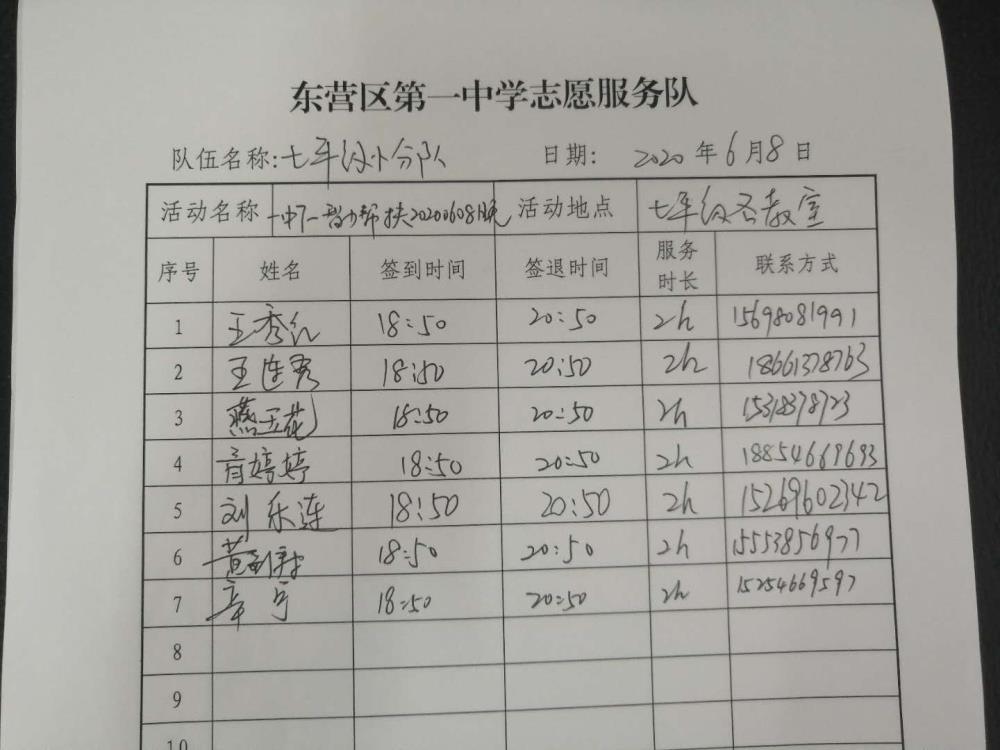 东营区第一中学志愿服务队
队伍名称:七年级小分队 日期: 2020 年 6 月 8 日
活动名称 帮扶20200608晚 活动地点 七年级各教室
序号 姓名 签到时间 签退时间 服务时长 联系方式
1 王秀红 18:50 20:50 2h 15698081991
2 王连秀 18:50 20:50 2h 18661378763
3 燕玉花 18:50 20:50 2h 15318378723
4 婷婷 18:50 20:50 2h 18854669693
5 刘乐莲 18:50 20:50 2h 15269602342
6 黄 18:50 20:50 2h 15553856977
7 18:50 20:50 2h 15254669597
8
9
10